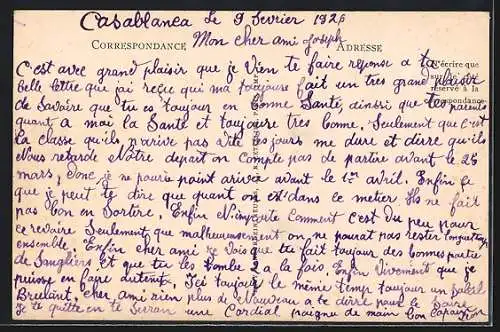 Casablanca le 9 Fevrier 1926
CORRESPONDANCE Mon cher ami Joseph ADRESSE
C'est avec grand plaisir que je vien te faire reponse a ta
belle lettre que j'ai reçue qui ma toujours fait un tres grand plaisir
de savoire que tu es toujour en bonne Santé, ainsi que tes parents
quant a moi la Santé et toujoure tres bonne. Seulement que c'est
la classe qu'ils n'arive pas vite les jours me dure et dire qu'ils
Nous retarde Notre depart on Compte pas de partire avant le 25
mars, donc je ne pourai point arivé avant le 1er avril. Enfin ce
que je peut te dire que quant on est dans ce metier ils ne fait
pas bon en sortire. Enfin N'importe Comment c'est du peu pour
ce revoire. Seulement que malheureusement on ne pourat pas rester longtemps
ensemble. Enfin cher ami je vois que tu fait toujour des bonnes partie
de Sangliers et que tu les tombe a la fois. Enfin Vivement que je
puisse en faire autent. Ici toujour le même temp toujour un Soleil
Brulant. cher ami rien plus de Nouveau a te dirre pour le
Je te quitte en te Serran une Cordial poigne de main ton Copain
l'écrire que
réservé à la